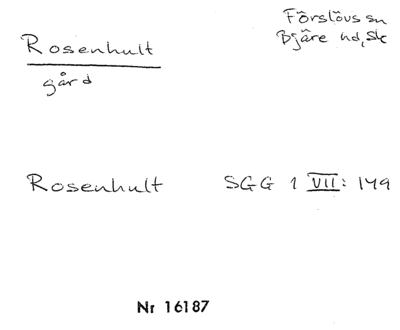 Rosenhult
gård
Förslövs sn
Bjäre hd, Sk
Rosenhult SGG 1 VII: 149
Nr 16187